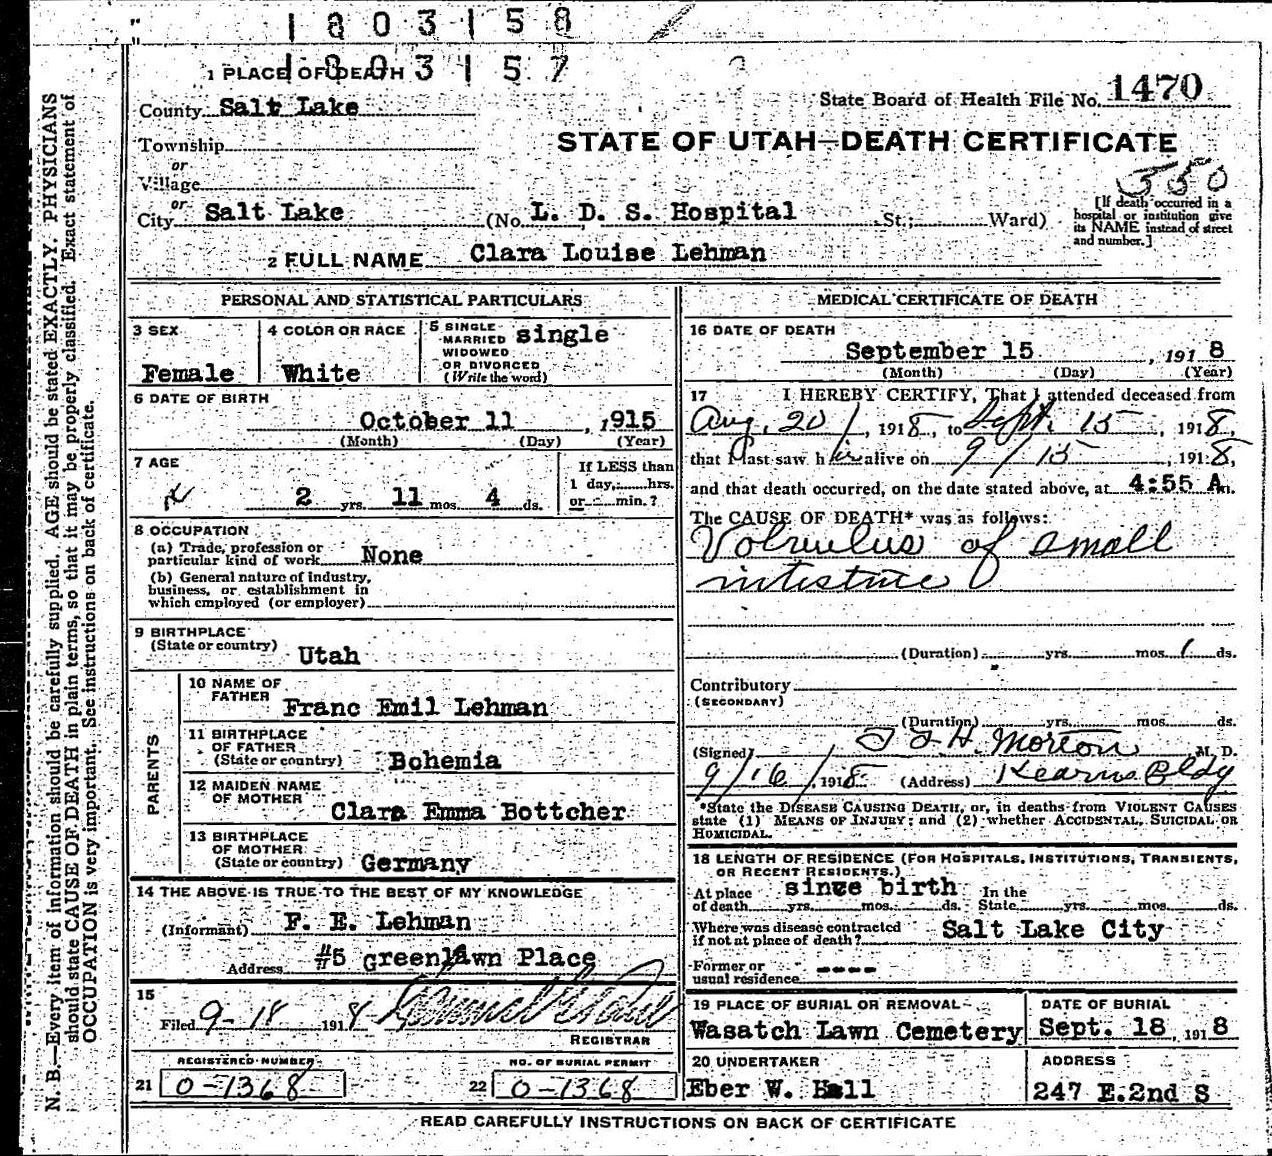 1803158
1803157
1 PLACE OF DEATH
County Salt Lake
State Board of Health File No. 1470
Township
STATE OF UTAH—DEATH CERTIFICATE
or
Village
550
or
City Salt Lake (No. L. D. S. Hospital St.; Ward)
[If death occurred in a
hospital or institution give
its NAME instead of street
and number.]
2 FULL NAME Clara Louise Lehman
PERSONAL AND STATISTICAL PARTICULARS
3 SEX
Female
4 COLOR OR RACE
White
5 SINGLE
MARRIED
WIDOWED
OR DIVORCED
(Write the word)
single
6 DATE OF BIRTH
October 11, 1915
(Month) (Day) (Year)
7 AGE
2 yrs. 11 mos. 4 ds.
If LESS than
1 day, hrs.
or min.?
8 OCCUPATION
(a) Trade, profession or
particular kind of work None
(b) General nature of industry,
business, or establishment in
which employed (or employer)
9 BIRTHPLACE
(State or country) Utah
PARENTS
10 NAME OF
FATHER Franc Emil Lehman
11 BIRTHPLACE
OF FATHER
(State or country) Bohemia
12 MAIDEN NAME
OF MOTHER Clara Emma Bottcher
13 BIRTHPLACE
OF MOTHER
(State or country) Germany
14 THE ABOVE IS TRUE TO THE BEST OF MY KNOWLEDGE
(Informant) F. E. Lehman
Address #5 Greenlawn Place
15
Filed 9-18 1918
REGISTRAR
REGISTERED NUMBER
21 0-1368
NO. OF BURIAL PERMIT
22 0-1368
MEDICAL CERTIFICATE OF DEATH
16 DATE OF DEATH
September 15, 1918
(Month) (Day) (Year)
17 I HEREBY CERTIFY, That I attended deceased from
Aug. 20, 1918, to Sept. 15, 1918,
that I last saw her alive on 9/15, 1918,
and that death occurred, on the date stated above, at 4:55 A m.
The CAUSE OF DEATH* was as follows:
Volvulus of small
intestine
(Duration) yrs. mos. 1 ds.
Contributory
(SECONDARY)
(Duration) yrs. mos. ds.
(Signed) Morton M. D.
9/16/, 1918 (Address) Kearns Bldg
*State the DISEASE CAUSING DEATH, or, in deaths from VIOLENT CAUSES
state (1) MEANS OF INJURY; and (2) whether ACCIDENTAL, SUICIDAL OR
HOMICIDAL.
18 LENGTH OF RESIDENCE (FOR HOSPITALS, INSTITUTIONS, TRANSIENTS,
OR RECENT RESIDENTS.)
At place since birth In the
of death yrs. mos. ds. State yrs. mos. ds.
Where was disease contracted
if not at place of death? Salt Lake City
Former or
usual residence ----
19 PLACE OF BURIAL OR REMOVAL
Wasatch Lawn Cemetery
DATE OF BURIAL
Sept. 18, 1918
20 UNDERTAKER
Eber W. Hall
ADDRESS
247 E.2nd S
READ CAREFULLY INSTRUCTIONS ON BACK OF CERTIFICATE
N. B.—Every item of information should be carefully supplied. AGE should be stated EXACTLY. PHYSICIANS
should state CAUSE OF DEATH in plain terms, so that it may be properly classified. Exact statement of
OCCUPATION is very important. See instructions on back of certificate.